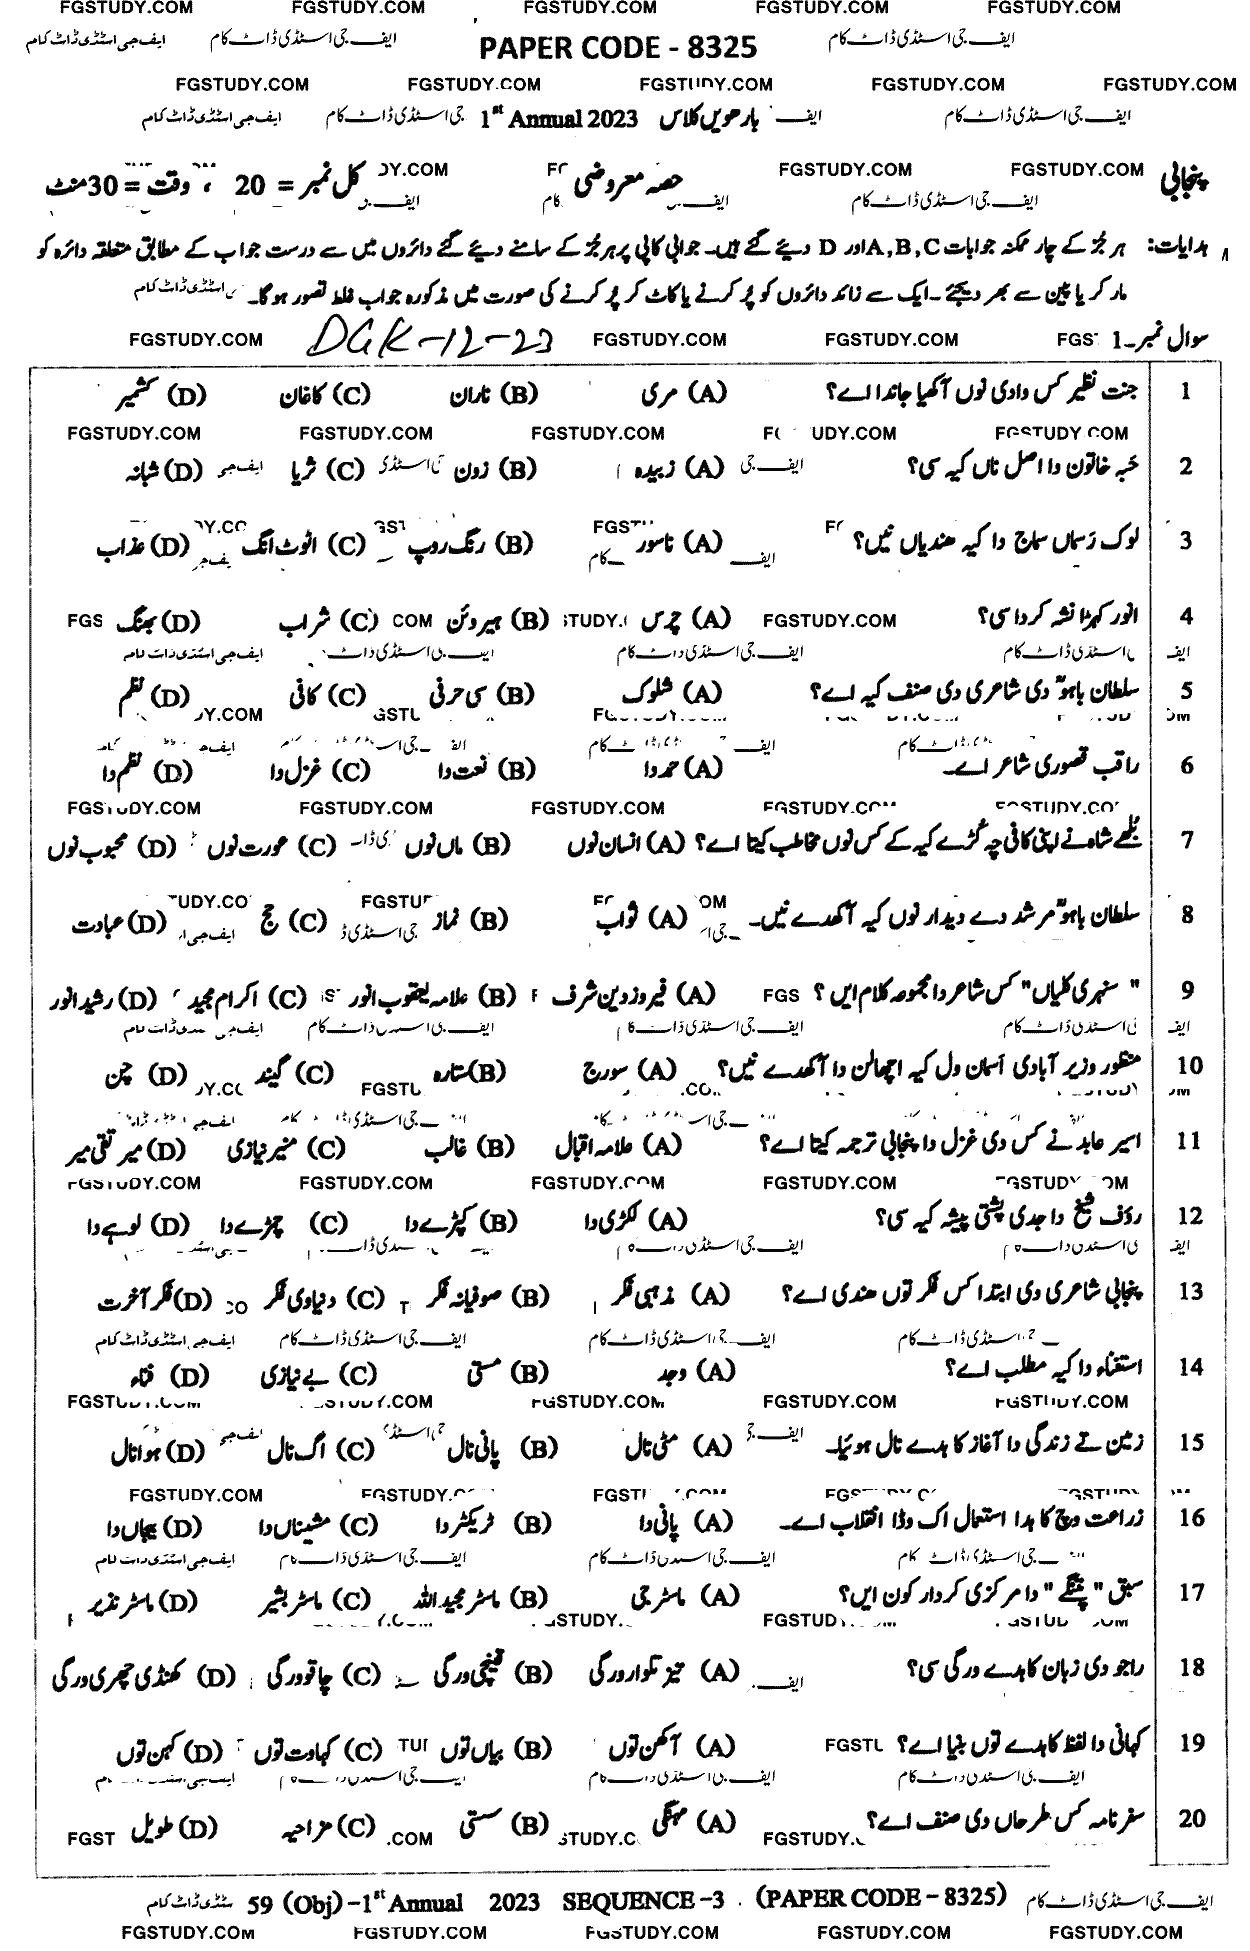 FGSTUDY.COM FGSTUDY.COM FGSTUDY.COM FGSTUDY.COM FGSTUDY.COM
ایف جی اسٹڈی ڈاٹ کام ایف جی اسٹڈی ڈاٹ کام PAPER CODE - 8325 ایف جی اسٹڈی ڈاٹ کام
FGSTUDY.COM FGSTUDY.COM FGSTUDY.COM FGSTUDY.COM FGSTUDY.COM
بارھویں کلاس 1st Annual 2023
پنجابی حصہ معروضی کل نمبر = 20 ، وقت = 30 منٹ
ہدایات: ہر جُز کے چار ممکنہ جوابات A,B,C اور D دیئے گئے ہیں۔ جوابی کاپی پر ہر جُز کے سامنے دیئے گئے دائروں میں سے درست جواب کے مطابق متعلقہ دائرہ کو
مارکر یا پین سے بھر دیجئے ۔ ایک سے زائد دائروں کو پُر کرنے یا کاٹ کر پُر کرنے کی صورت میں مذکورہ جواب غلط تصور ہوگا۔
سوال نمبر۔1 DGK-12-23
1 جنت نظیر کس وادی نوں آکھیا جاندا اے؟ (A) مری (B) ناران (C) کاغان (D) کشمیر
2 حبہ خاتون دا اصل ناں کیہ سی؟ (A) زبیدہ (B) زون (C) ثریا (D) شبانہ
3 لوک رسماں سماج دا کیہ ھندیاں نیں؟ (A) ناسور (B) رنگ روپ (C) اٹوٹ انگ (D) عذاب
4 انور کہڑا نشہ کردا سی؟ (A) چرس (B) ہیروئن (C) شراب (D) بھنگ
5 سلطان باہوؒ دی شاعری دی صنف کیہ اے؟ (A) شلوک (B) سی حرفی (C) کافی (D) نظم
6 راقب قصوری شاعر اے۔ (A) حمد دا (B) نعت دا (C) غزل دا (D) نظم دا
7 بُلھے شاہ نے اپنی کافی چہ کُڑے کہہ کے کس نوں مخاطب کیتا اے؟ (A) انسان نوں (B) ماں نوں (C) عورت نوں (D) محبوب نوں
8 سلطان باہوؒ مرشد دے دیدار نوں کیہ آکھدے نیں۔ (A) ثواب (B) نماز (C) حج (D) عبادت
9 " سنہری کلیاں" کس شاعر دا مجموعہ کلام ایں ؟ (A) فیروز دین شرف (B) علامہ یعقوب انور (C) اکرام مجید (D) رشید انور
10 منظور وزیر آبادی اسمان ول کیہ اچھالن دا آکھدے نیں؟ (A) سورج (B) ستارہ (C) گیند (D) چن
11 اسیر عابد نے کس دی غزل دا پنجابی ترجمہ کیتا اے؟ (A) علامہ اقبال (B) غالب (C) منیر نیازی (D) میر تقی میر
12 رؤف شیخ دا جدی پشتی پیشہ کیہ سی؟ (A) لکڑی دا (B) کپڑے دا (C) چمڑے دا (D) لوہے دا
13 پنجابی شاعری دی ابتدا کس فکر توں ھندی اے؟ (A) مذہبی فکر (B) صوفیانہ فکر (C) دنیاوی فکر (D) فکر آخرت
14 استغناء دا کیہ مطلب اے؟ (A) وجد (B) مستی (C) بے نیازی (D) فناء
15 زمین تے زندگی دا آغاز کاہدے نال ہوئیا۔ (A) مٹی نال (B) پانی نال (C) اگ نال (D) ہوا نال
16 زراعت وچ کاہدا استعمال اک وڈا انقلاب اے۔ (A) پانی دا (B) ٹریکٹر دا (C) مشیناں دا (D) بیجاں دا
17 سبق " پتنگے" دا مرکزی کردار کون ایں؟ (A) ماسٹر جی (B) ماسٹر مجید اللہ (C) ماسٹر بشیر (D) ماسٹر نذیر
18 راجو دی زبان کاہدے ورگی سی؟ (A) تیز تلوار ورگی (B) قینچی ورگی (C) چاقو ورگی (D) کھنڈی چھری ورگی
19 کہانی دا لفظ کاہدے توں بنیا اے؟ (A) آکھن توں (B) بیاں توں (C) کہاوت توں (D) کہن توں
20 سفر نامہ کس طرحاں دی صنف اے؟ (A) مہنگی (B) سستی (C) مزاحیہ (D) طویل
59 (Obj) -1st Annual 2023 SEQUENCE -3 . (PAPER CODE - 8325) ایف جی اسٹڈی ڈاٹ کام
FGSTUDY.COM FGSTUDY.COM FGSTUDY.COM FGSTUDY.COM FGSTUDY.COM